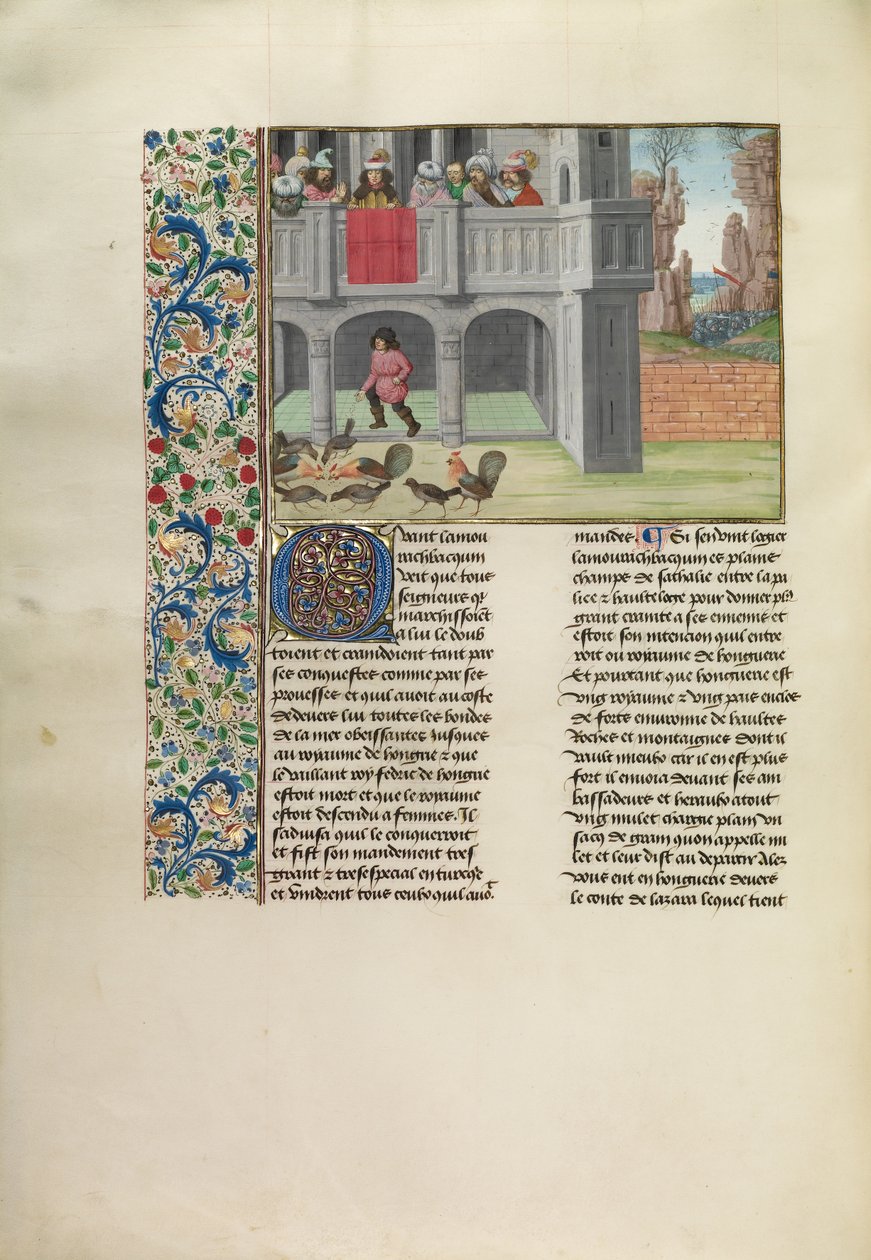 Quant lamou
rathbacquin
veit que tous
seigneurs q̃
marchissoiẽt
a lui le doub
toient et craindoient tant par
ses conquestes comme par ses
prouesses et quil auoit au coste
de deuers lui toutes les bondes
de la mer obeissantes Jusques
au royaume de hongrie ⁊ que
le vaillant roy fedric de hongrie
estoit mort et que le royaume
estoit descendu a femmes. Il
saduisa quil le conquerroit
et fist son mandement tres
grant ⁊ tres especial en turcq̃e
et vindrent tous ceulx quil auoit
mandes. ¶ Si sen vint logier
lamourathbacquin es plains
champs de sathalie entre la pa
liee ⁊ haulteloge pour donner plꝰ
grant crainte a ses ennemis et
estoit son intencion quil entre
roit ou royaume de honguerie
Et pourtant que honguerie est
vng royaume ⁊ vng pais enclos
de fors enuironne de haultes
Roches et montaignes dont il
vault mieulx car il en est plus
fort il enuoia deuant ses am
bassadeurs et heraulx a tout
vng mulet chargie plain vn
sacq de grain quon appelle mi
let et leur dist au departir Alez
vous ent en honguerie deuers
le conte de lazara lequel tient